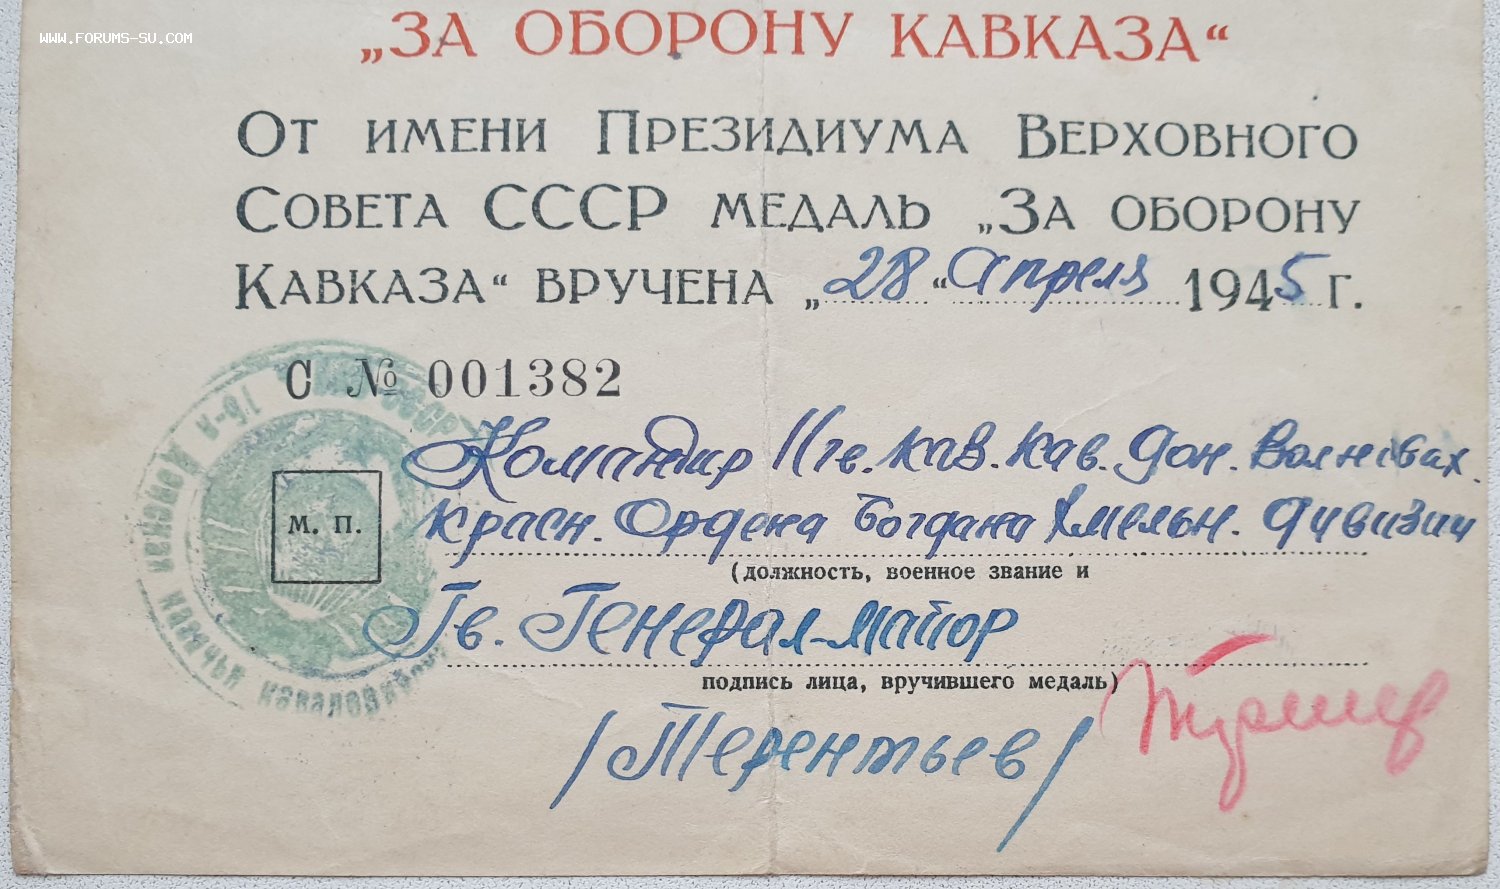 WWW.FORUMS-SU.COM
„ЗА ОБОРОНУ КАВКАЗА“
ОТ ИМЕНИ ПРЕЗИДИУМА ВЕРХОВНОГО
СОВЕТА СССР МЕДАЛЬ „ЗА ОБОРОНУ
КАВКАЗА“ ВРУЧЕНА „28“ Апреля 1945 г.
С № 001382
Командир 11 гв. кав. каз. Дон. Волновах.
М. П.
красн. Ордена Богдана Хмельн. дивизии
(должность, военное звание и
Гв. Генерал-майор
подпись лица, вручившего медаль)
/Терентьев/